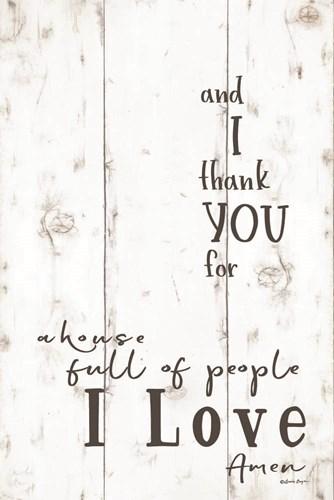 and
I
thank
YOU
for
a house
full of people
I Love
Amen